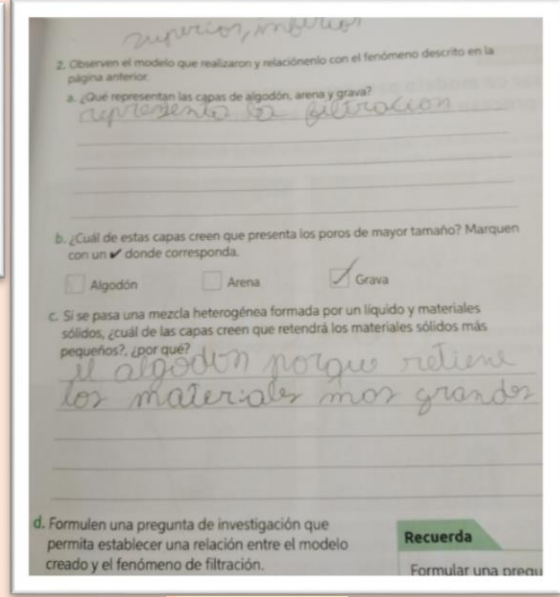 superior, inferior
2. Observen el modelo que realizaron y relaciónenlo con el fenómeno descrito en la
página anterior.
a. ¿Qué representan las capas de algodón, arena y grava?
representa la filtracion
b. ¿Cuál de estas capas creen que presenta los poros de mayor tamaño? Marquen
con un ✔ donde corresponda.
Algodón Arena Grava
c. Si se pasa una mezcla heterogénea formada por un líquido y materiales
sólidos, ¿cuál de las capas creen que retendrá los materiales sólidos más
pequeños?, ¿por qué?
el algodon porque retiene
los materiales mas grandes
d. Formulen una pregunta de investigación que
permita establecer una relación entre el modelo
creado y el fenómeno de filtración.
Recuerda
Formular una pregu